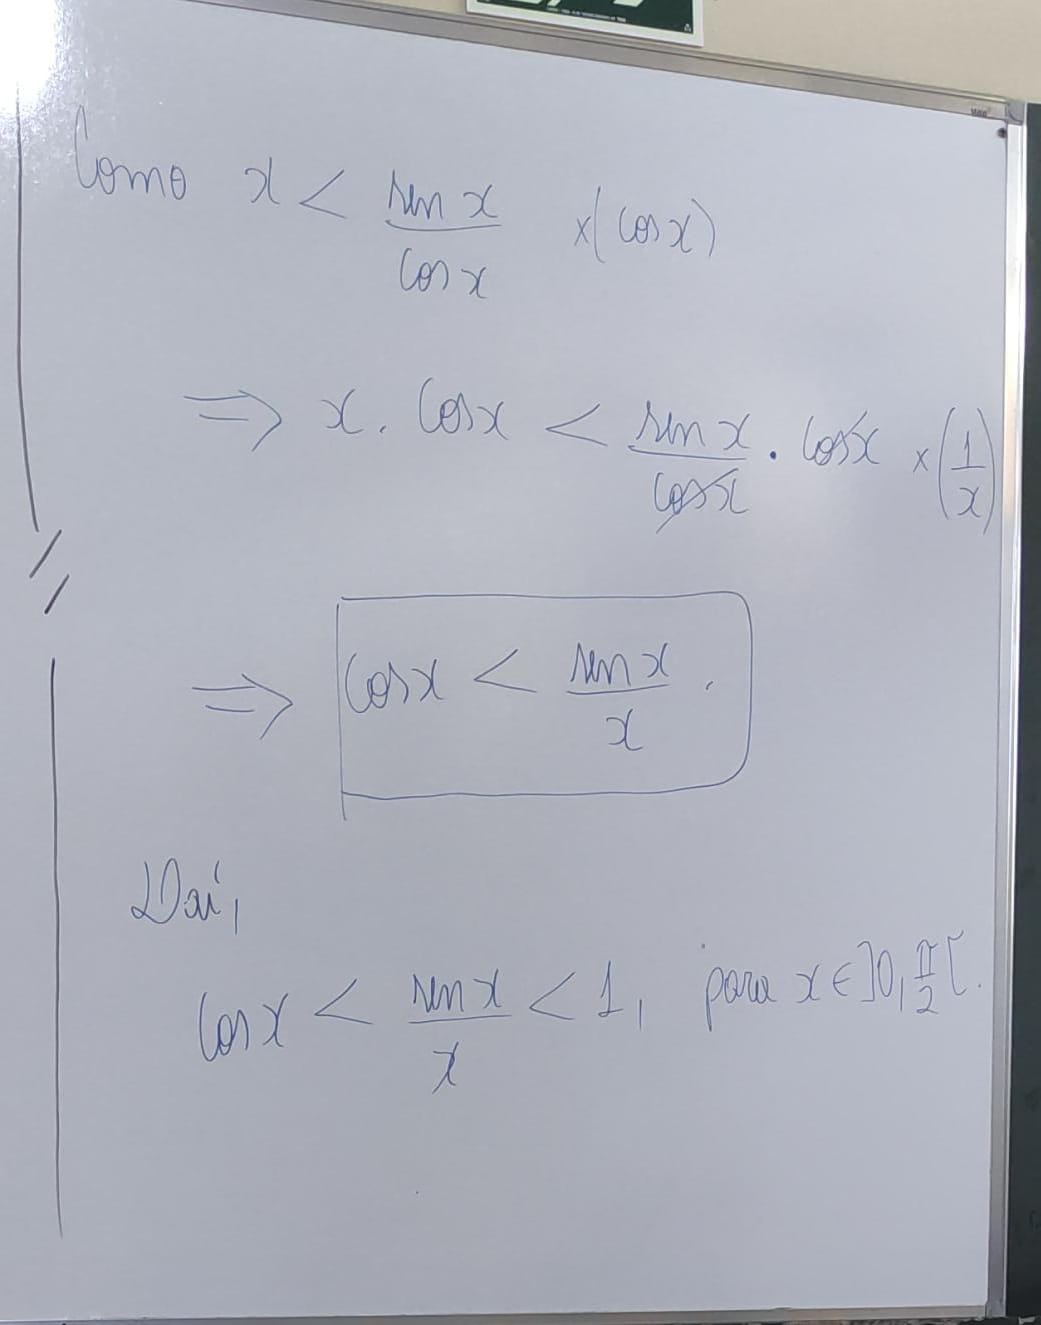 Como x < sen x / cos x ×(cos x)
⇒ x . cos x < sen x / cos x . cos x ×(1/x)
⇒ cos x < sen x / x .
Daí,
cos x < sen x / x < 1, para x ∈ ]0, π/2[.